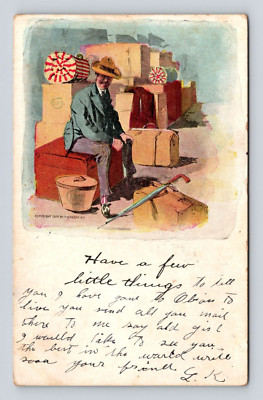 COPYRIGHT
Have a few
little things to tell
you I have gone to Obion to
live you send all you mail
there to me say old girl
I would like to see you
the best in the world write
soon your friend
L. K